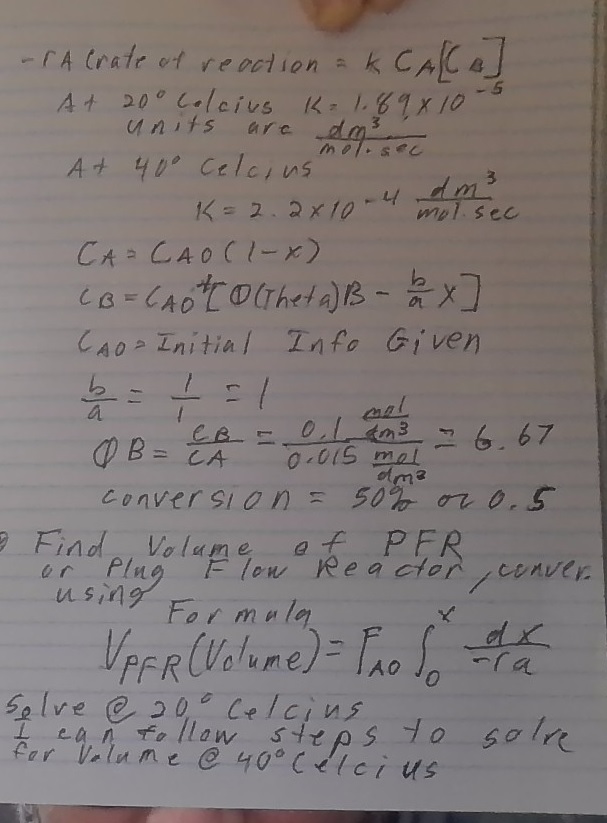 -rA (rate of reaction = K CA[CB]
At 20° Celcius K = 1.89 x 10^-5
units are dm³/mol.sec
At 40° Celcius
K = 2.2x10^-4 dm³/mol.sec
CA = CAO(1-x)
CB = CAO*[Θ(Theta)B - b/a x]
CAO = Initial Info Given
b/a = 1/1 = 1
ΘB = CB/CA = 0.1 mol/dm3 / 0.015 mol/dm3 = 6.67
conversion = 50% or 0.5
Find Volume of PFR
or Plug Flow Reactor, conver.
using
Formula
VPFR (Volume) = FAO ∫₀ˣ dx/-ra
Solve @ 20° Celcius
I can follow steps to solve
for Volume @ 40° Celcius